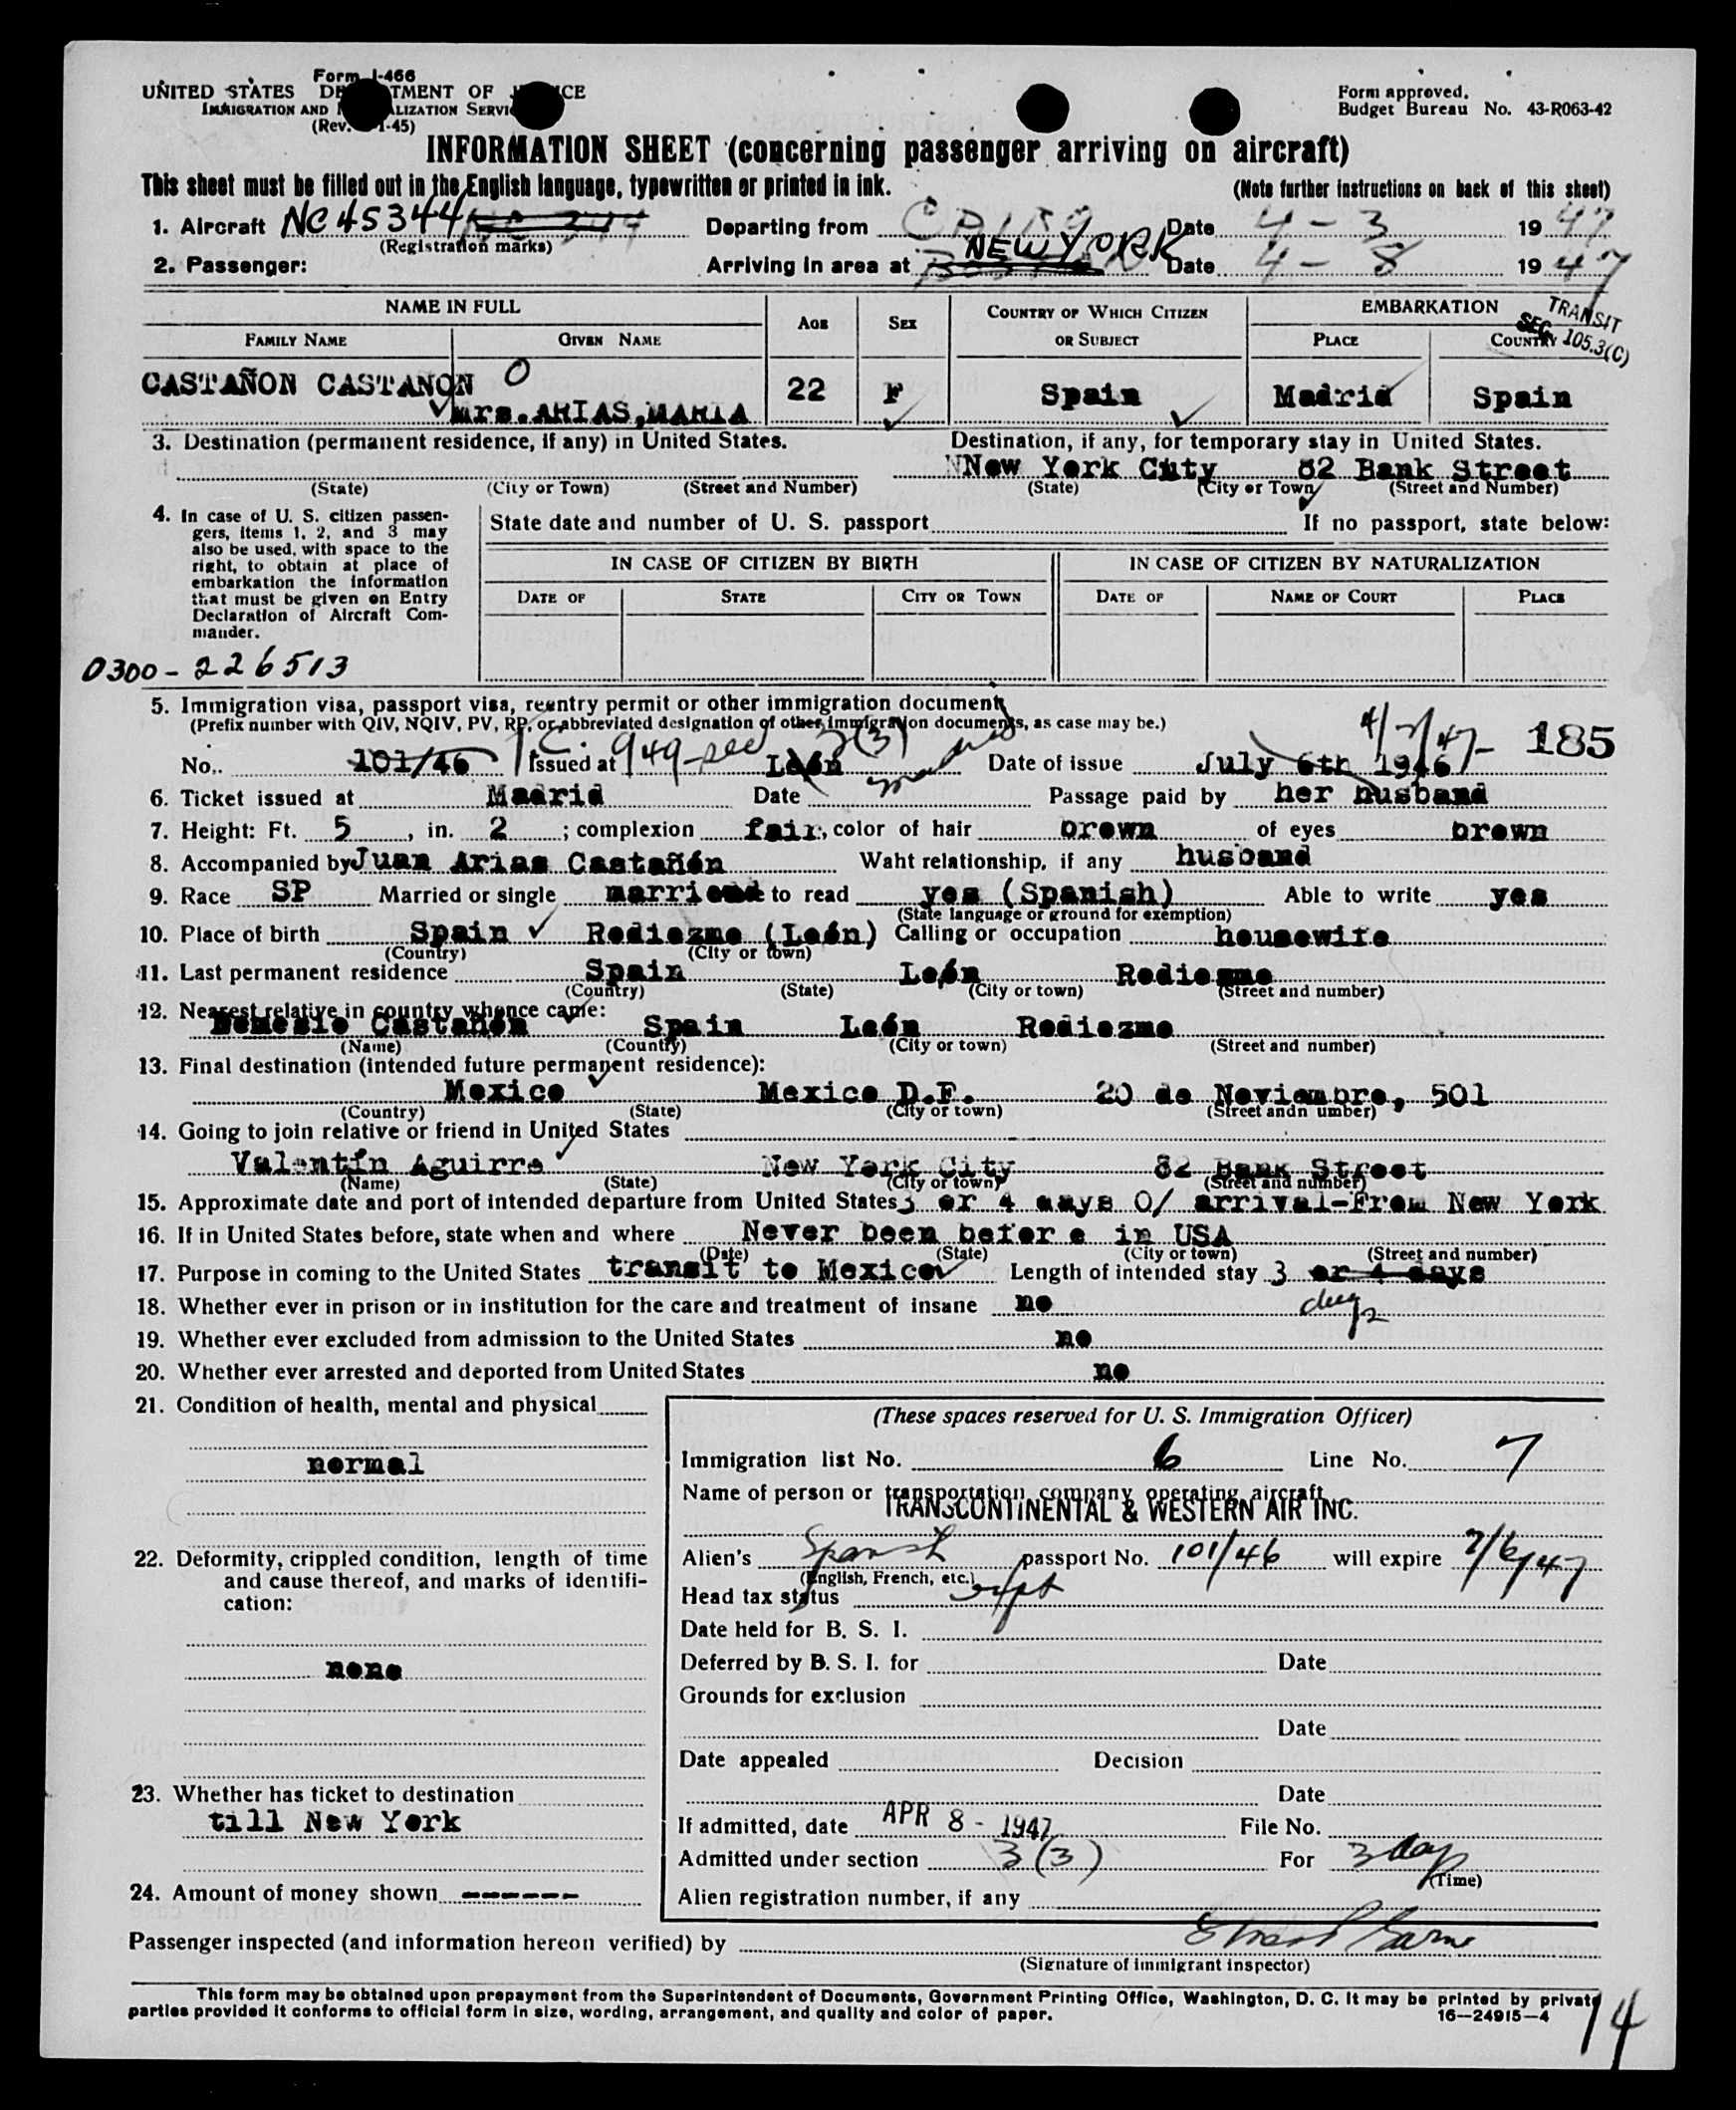 Form I-466
UNITED STATES DE TMENT OF J CE
IMMIGRATION AND N ALIZATION SERVI
(Rev. 1-45)
Form approved.
Budget Bureau No. 43-R063-42
INFORMATION SHEET (concerning passenger arriving on aircraft)
This sheet must be filled out in the English language, typewritten or printed in ink. (Note further instructions on back of this sheet)
1. Aircraft NC 45344 Departing from CAIRO Date 4 - 3 1947
(Registration marks)
2. Passenger: Arriving in area at NEW YORK Date 4 - 8 1947
NAME IN FULL AGE SEX COUNTRY OF WHICH CITIZEN OR SUBJECT EMBARKATION
TRANSIT SEC. 105.3(C)
FAMILY NAME GIVEN NAME PLACE COUNTRY
CASTAÑON CASTANON O 22 F Spain Madrid Spain
Mrs.ARIAS,MARIA
3. Destination (permanent residence, if any) in United States. Destination, if any, for temporary stay in United States.
NNew York City 82 Bank Street
(State) (City or Town) (Street and Number) (State) (City or Town) (Street and Number)
4. In case of U. S. citizen passen-
gers, items 1, 2, and 3 may
also be used, with space to the
right, to obtain at place of
embarkation the information
that must be given on Entry
Declaration of Aircraft Com-
mander.
State date and number of U. S. passport If no passport, state below:
IN CASE OF CITIZEN BY BIRTH IN CASE OF CITIZEN BY NATURALIZATION
DATE OF STATE CITY OR TOWN DATE OF NAME OF COURT PLACE
0300-226513
5. Immigration visa, passport visa, reentry permit or other immigration document
(Prefix number with QIV, NQIV, PV, RP, or abbreviated designation of other immigration documents, as case may be.)
T.C. 949-sec 3(3) 4/2/47- 185
No.. 101/46 Issued at León Date of issue July 6th 1946
6. Ticket issued at Madrid Date Passage paid by her husband
7. Height: Ft. 5, in. 2; complexion fair, color of hair brown of eyes brown
8. Accompanied by Juan Arias Castañón Waht relationship, if any husband
9. Race SP Married or single married to read yes (Spanish) Able to write yes
(State language or ground for exemption)
10. Place of birth Spain Rodiezmo (León) Calling or occupation housewife
(Country) (City or town)
11. Last permanent residence Spain León Rodiezmo
(Country) (State) (City or town) (Street and number)
12. Nearest relative in country whence came:
Nemesio Castañón Spain León Rodiezmo
(Name) (Country) (City or town) (Street and number)
13. Final destination (intended future permanent residence):
Mexico Mexico D.F. 20 de Noviembre, 501
(Country) (State) (City or town) (Street andn umber)
14. Going to join relative or friend in United States
Valentín Aguirre New York City 82 Bank Street
(Name) (State) (City or town) (Street and number)
15. Approximate date and port of intended departure from United States 3 or 4 days O/ arrival-From New York
16. If in United States before, state when and where Never been befor e in USA
(Date) (State) (City or town) (Street and number)
17. Purpose in coming to the United States transit to Mexico Length of intended stay 3 or 4 days
days
18. Whether ever in prison or in institution for the care and treatment of insane no
19. Whether ever excluded from admission to the United States no
20. Whether ever arrested and deported from United States no
21. Condition of health, mental and physical
normal
22. Deformity, crippled condition, length of time
and cause thereof, and marks of identifi-
cation:
none
23. Whether has ticket to destination
till New York
24. Amount of money shown ------
(These spaces reserved for U. S. Immigration Officer)
Immigration list No. 6 Line No. 7
Name of person or transportation company operating aircraft
TRANSCONTINENTAL & WESTERN AIR INC.
Alien's Spanish passport No. 101/46 will expire 7/6/47
(English, French, etc.)
Head tax status
Date held for B. S. I.
Deferred by B. S. I. for Date
Grounds for exclusion
Date
Date appealed Decision
Date
If admitted, date APR 8 - 1947 File No.
Admitted under section 3(3) For 3 days
(Time)
Alien registration number, if any
Passenger inspected (and information hereon verified) by
(Signature of immigrant inspector)
This form may be obtained upon prepayment from the Superintendent of Documents, Government Printing Office, Washington, D. C. It may be printed by private
parties provided it conforms to official form in size, wording, arrangement, and quality and color of paper. 16—24915-4
14